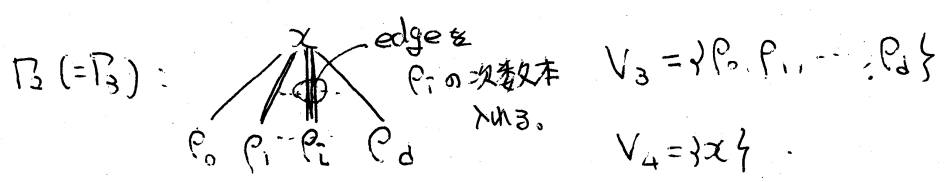 Γ₂ (=Γ₃) :
x
edgeを
ρᵢの次数本
入れる。
ρ₀ ρ₁ ... ρᵢ ρd
V₃ = {ρ₀, ρ₁, ..., ρd}
V₄ = {x} .